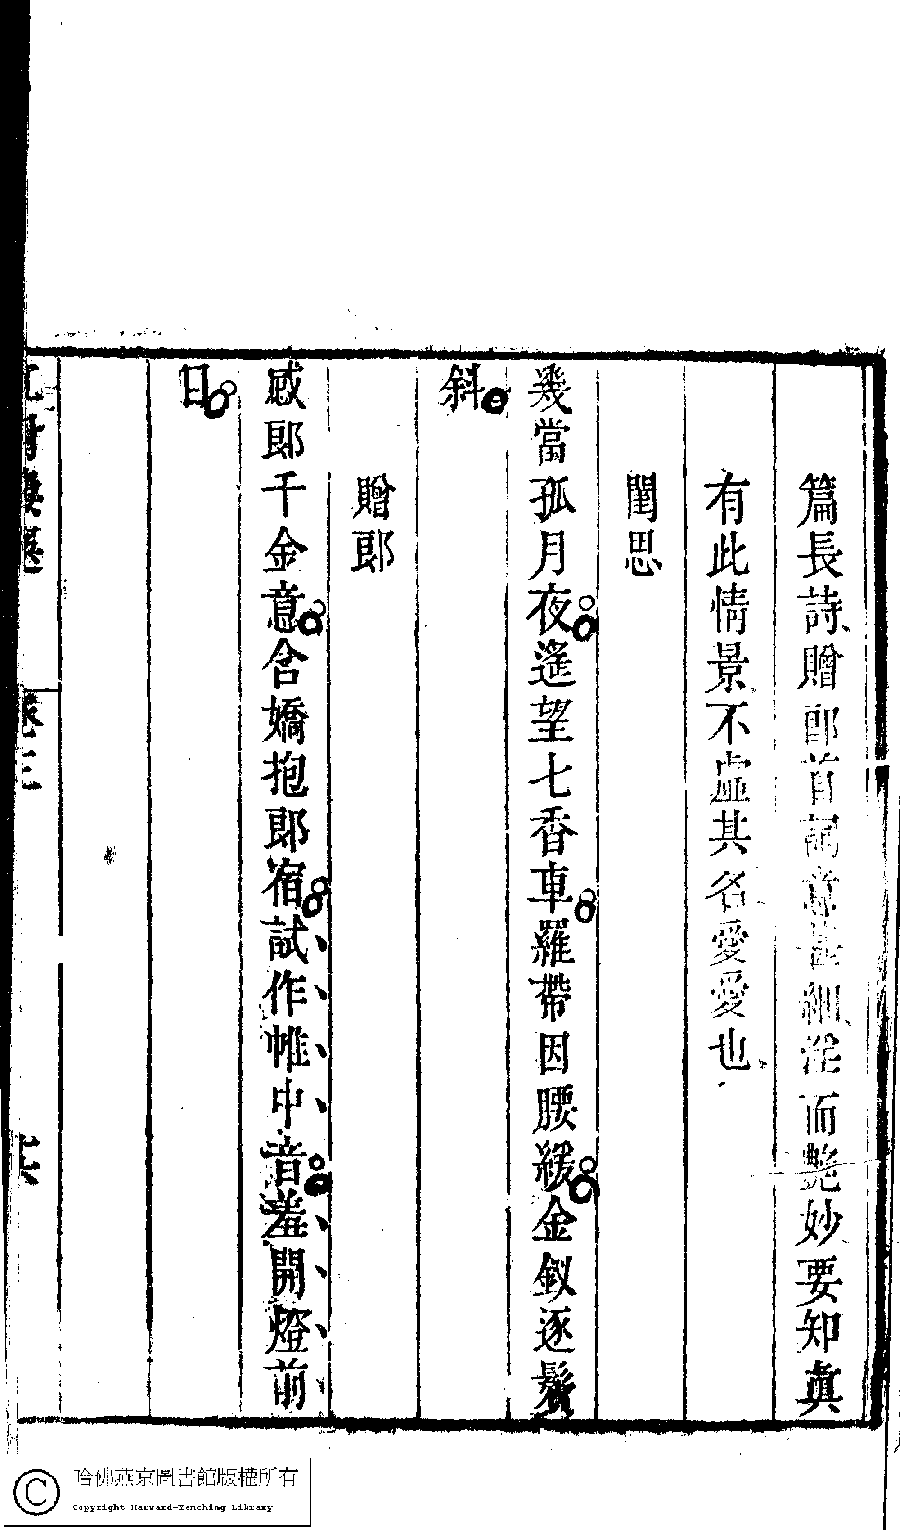 篇長詩贈郎首詞意甚細淫而艷妙要知眞
有此情景不虛其名愛愛也
閨思
幾當孤月夜遙望七香車羅帶因腰緩金釵逐鬢
斜
贈郎
感郎千金意含嬌抱郎宿試作帷中音羞開燈前
目
卷三
哈佛燕京圖書館版權所有
Copyright Harvard-Yenching Library